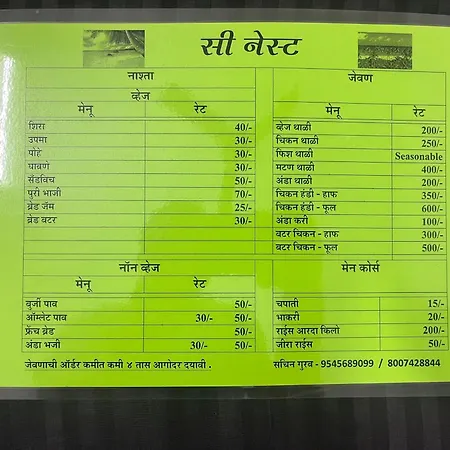 सी नेस्ट
नाश्ता
व्हेज
मेनू रेट
शिरा 40/-
उपमा 30/-
पोहे 30/-
घावणे 30/-
सॅंडविच 50/-
पुरी भाजी 70/-
ब्रेड जॅम 25/-
ब्रेड बटर 30/-
नॉन व्हेज
मेनू रेट
बुर्जी पाव 50/-
ऑम्लेट पाव 30/- 50/-
फ्रेंच ब्रेड 50/-
अंडा भजी 30/- 50/-
जेवण
मेनू रेट
व्हेज थाळी 200/-
चिकन थाळी 250/-
फिश थाळी Seasonable
मटण थाळी 400/-
अंडा थाळी 200/-
चिकन हंडी - हाफ 350/-
चिकन हंडी - फूल 600/-
अंडा करी 100/-
बटर चिकन - हाफ 300/-
बटर चिकन - फूल 500/-
मेन कोर्स
चपाती 15/-
भाकरी 20/-
राईस आरदा किलो 200/-
जीरा राईस 50/-
जेवणाची ऑर्डर कमीत कमी ४ तास आगोदर दयावी .
सचिन गुरव - 9545689099 / 8007428844